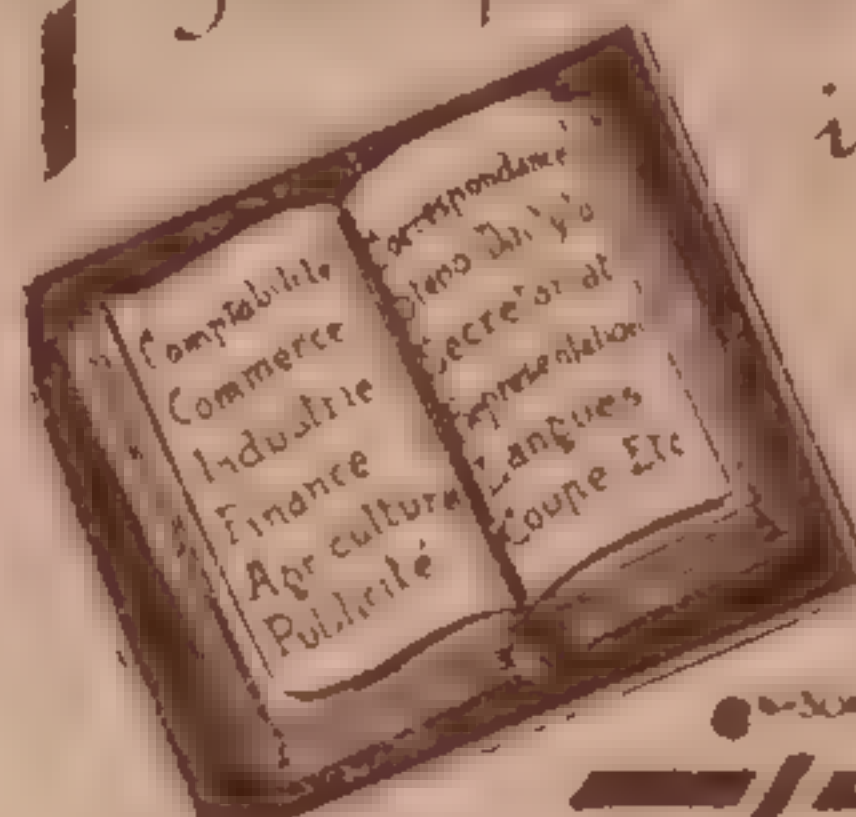 Comptabilité
Commerce
Industrie
Finance
Agriculture
Publicité
Correspondance
Steno Dact'yl'o
Secretariat
Representation
Langues
Coupe Etc